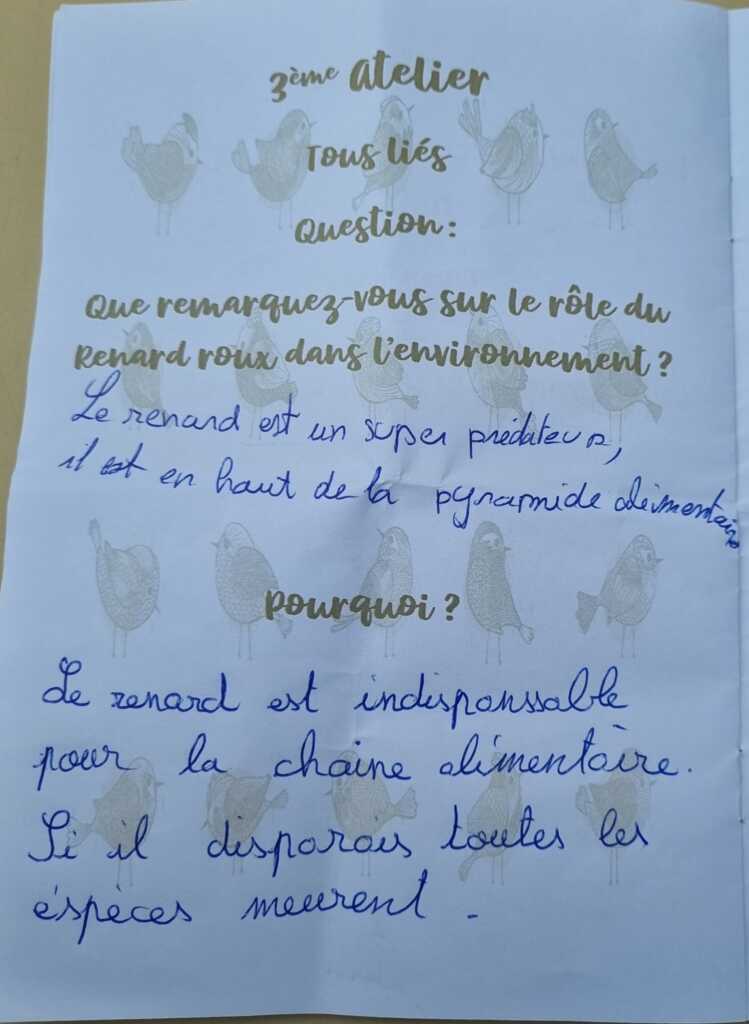 3ème Atelier
Tous liés
Question :
Que remarquez-vous sur le rôle du
Renard roux dans l'environnement ?
Le renard est un super prédateur,
il est en haut de la pyramide alimentaire
Pourquoi ?
Le renard est indisponssable
pour la chaine alimentaire.
Si il disparais toutes les
éspèces meurent.